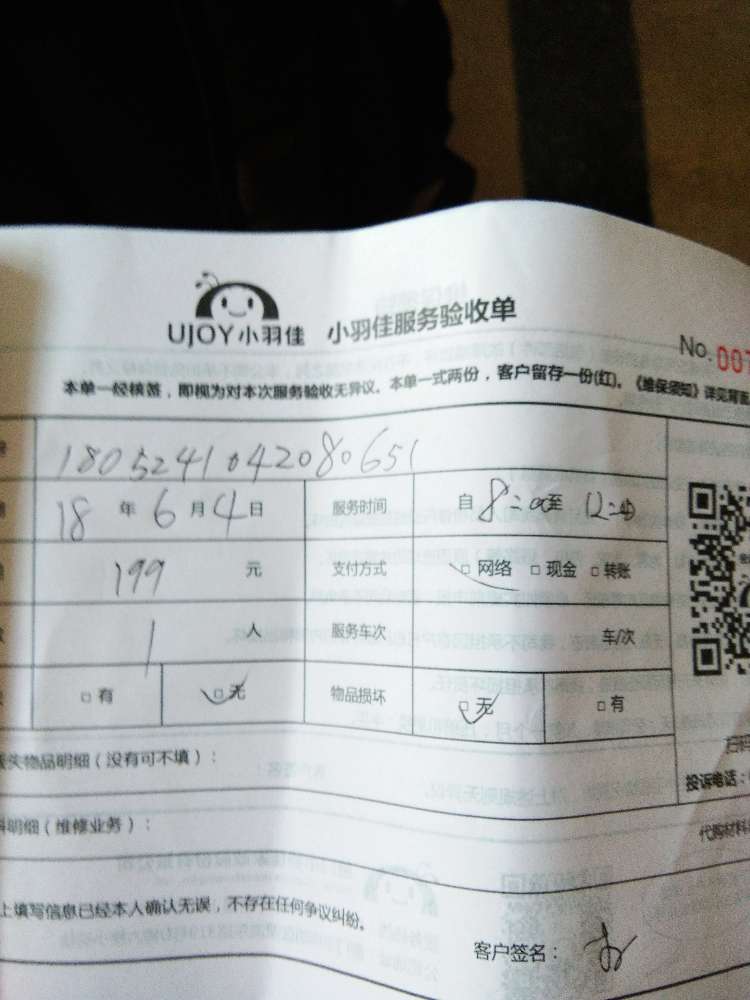 UJOY小羽佳 小羽佳服务验收单
No. 007
本单一经核签，即视为对本次服务验收无异议。本单一式两份，客户留存一份(红)。《维保须知》详见背面
1805241042080651
18 年 6 月 4 日 服务时间 自 8:00 至 12:00
199 元 支付方式 □ 网络 □ 现金 □ 转账
1 人 服务车次 车/次
□ 有 □ 无 物品损坏 □ 无 □ 有
失物品明细（没有可不填）： 扫
投诉电话：
明细（维修业务）： 代购材料
上填写信息已经本人确认无误，不存在任何争议纠纷。
客户签名：